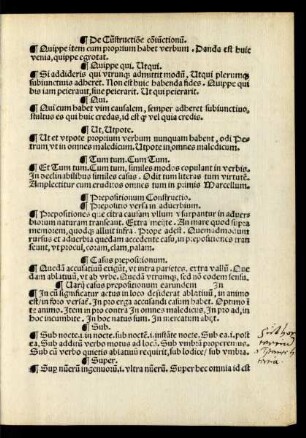 ¶ De Cũstructiõe cõiũctionũ.
¶ Quippe item cum proprium habet verbum. Danda est huic
venia, quippe egrotat.
¶ Quippe qui, Utqui.
¶ Si addideris qui vtrũqȝ admittit modũ, Utqui plerumqȝ
subiunctiuis adheret. Non est huic habenda fides. Quippe qui
bis iam peierauit, siue peierarit. Ut qui peierarit.
¶ Qui.
Qui cum habet vim causalem, semper adheret subiunctiuo,
stultus es qui huic credas, id est qȝ vel quia credis.
¶ Ut, Utpote.
¶ Ut et vtpote proprium verbum nunquam habent, odi Pe-
trum, vt in omnes maledicum. Utpote in omnes maledicum.
¶ Tum tum. Cum Tum.
¶ Et Tum tum, Cum tum, similes modos copulant in verbis.
In declinabilibus similes casus. Odit tum literas tum virtutẽ.
Amplectitur cum eruditos omnes tum in primis Marcellum.
¶ Prepositionum Constructio.
¶ Prepositio versa in aduerbium.
¶ Prepositiones que citra casum vllum vsurpantur in aduer-
biorum naturam transeunt. Extra meice. An mare quod supra
memorem, quodqȝ alluit infra. Prope adest. Quemadmodum
rursus et aduerbia quedam accedente casu, in prepositiones tran
seunt, vt procul, coram, clam, palam.
¶ Casus prepositionum.
¶ Quedã accusatiuũ exigũt, vt intra parietes, extra vallũ. Que
dam ablatiuũ, vt ab vrbe. Quedã vtrumqȝ, sed nõ eodem sensu.
¶ Uarij casus prepositionum earundem In
¶ In cũ significatur actus in loco desiderat ablatiuũ, in animo
est, in foro versat. In pro erga accusandi casum habet. Optimo ĩ
te animo. Item in pro contra In omnes maledicus, In pro ad, in
hoc incumbite. In hoc natus sum. In mercatum abijt.
¶ Sub.
¶ Sub nocte .i. in nocte. sub noctẽ .i. instãte nocte. Sub ea .i. post
ea, Sub additũ verbo motus ad locũ. Sub vmbrã properemus.
Sub cũ verbo quietis ablatiuũ requirit, sub lodice, sub vmbra.
¶ Super.
¶ Sup nũerũ ingenuorũ .i. vltra nũerũ. Super hec omnia id est